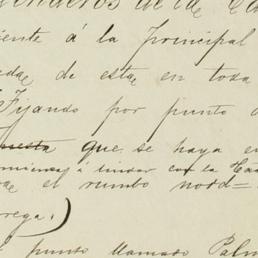 de la Ca
iente á la Principal
de esta en toda
Fijando por punto d
que se haya en
á lindar con la Ca
el rumbo nord=
rega)
punto llamado Palm